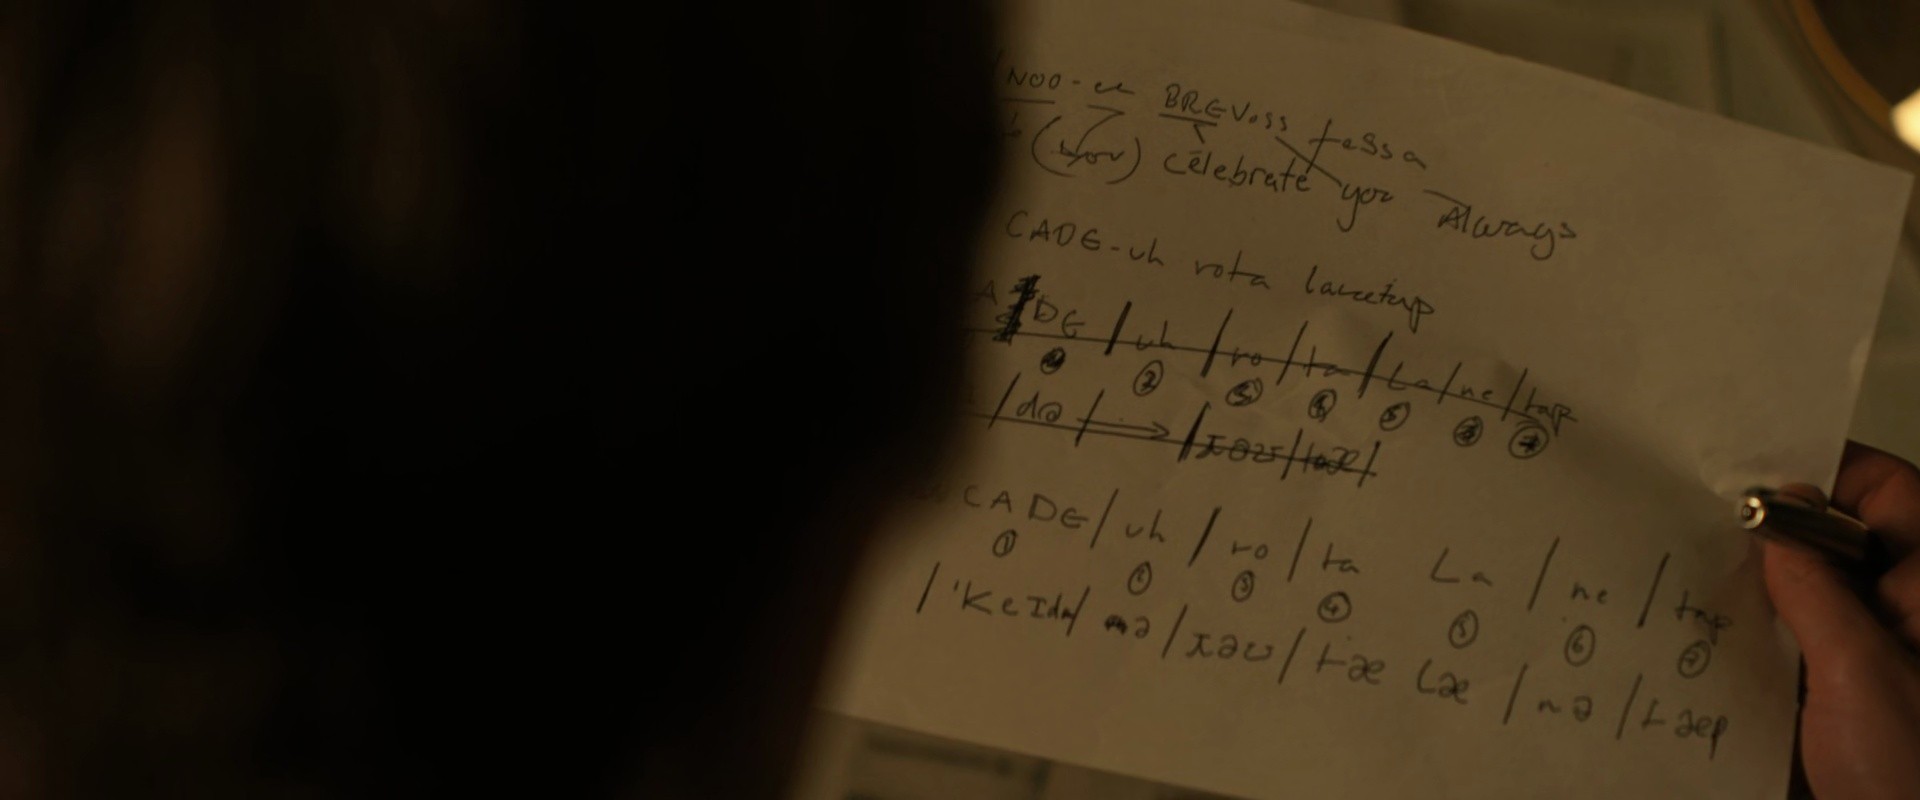 NOO-en BREVoss fessa
(you) célebrate you Always
CADE-uh rota lacetap
A DE / uh / ro / ta / La / ne / tap
2 3 4 5 6 7
/ də / → / ɪəʊ / tæ /
CADE / uh / ro / ta La / ne / tap
1 2 3 4 5 6 7
/ 'KeɪdƏ / nə / ɪəʊ / tæ læ / nə / tæp